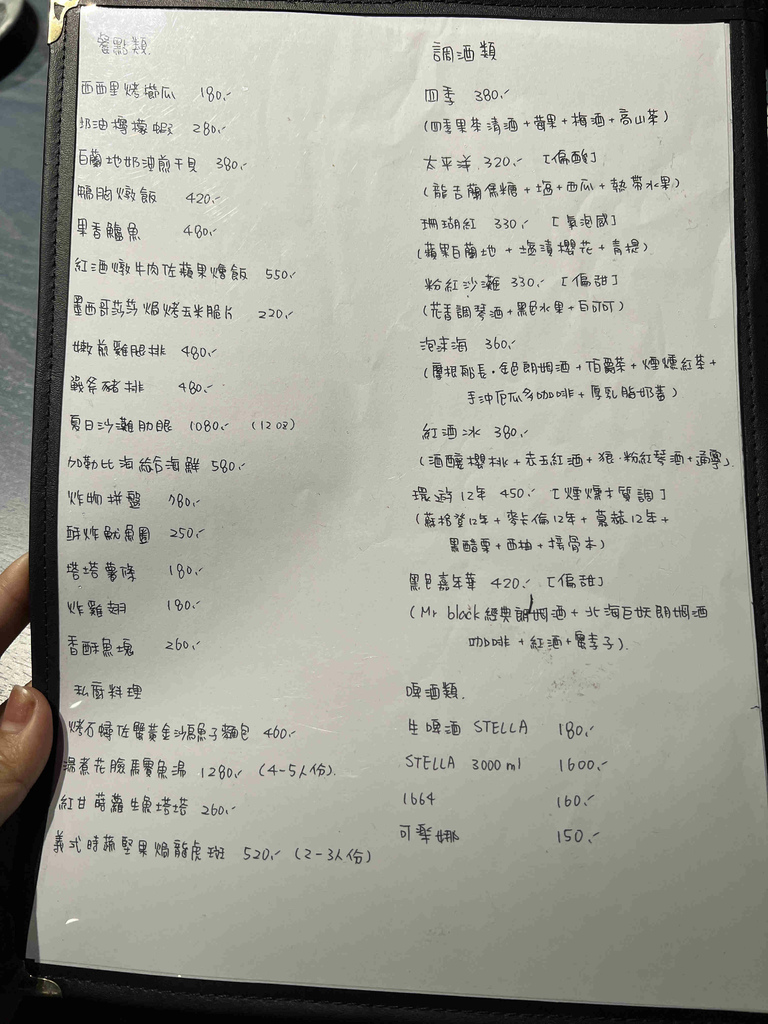 餐點類.
西西里烤櫛瓜 180.-
奶油檸檬蝦 280.-
白蘭地奶油煎干貝 380.-
鴨胸燉飯 420.-
果香鱸魚 480.-
紅酒燉牛肉佐蘋果燉飯 550.-
墨西哥莎莎焗烤玉米脆片 220.-
嫩煎雞腿排 480.-
戰斧豬排 480.-
夏日沙灘肋眼 1080.- (12 oz)
加勒比海綜合海鮮 580.-
炸物拼盤 780.-
酥炸魷魚圈 250.-
塔塔薯條 180.-
炸雞翅 180.-
香酥魚塊 260.-
私廚料理
烤石蟳佐蟹黃金沙烏魚子麵包 460.-
湯煮花臉馬賽魚湯 1280.- (4-5人份).
紅甘蒔蘿生魚塔塔 260.-
義式時蔬堅果焗龍虎斑 520.- (2-3人份)
調酒類
四季 380.-
(四季果茶清酒+莓果+梅酒+高山茶)
太平洋 320.- [偏酸]
(龍舌蘭焦糖+塩+西瓜+熱帶水果)
珊瑚紅 330.- [氣泡感]
(蘋果白蘭地+塩漬櫻花+青提)
粉紅沙灘 330.- [偏甜]
(花香調琴酒+黑色水果+白可可)
泡沫海 360.-
(摩根船長·金色朗姆酒+伯爵茶+煙燻紅茶+
手沖厄瓜多咖啡+厚乳脂奶蓋)
紅酒冰 380.-
(酒釀櫻桃+赤玉紅酒+狼·粉紅琴酒+通寧).
環遊12年 450.- [煙燻木質調]
(蘇格登12年+麥卡倫12年+慕赫12年+
黑醋栗+西柚+接骨木)
黑色嘉年華 420.- [偏甜]
(Mr black經典朗姆酒+北海巨妖朗姆酒
咖啡+紅酒+黑李子).
啤酒類.
生啤酒 STELLA 180.-
STELLA 3000 ml 1600.-
1664 160.-
可樂娜 150.-